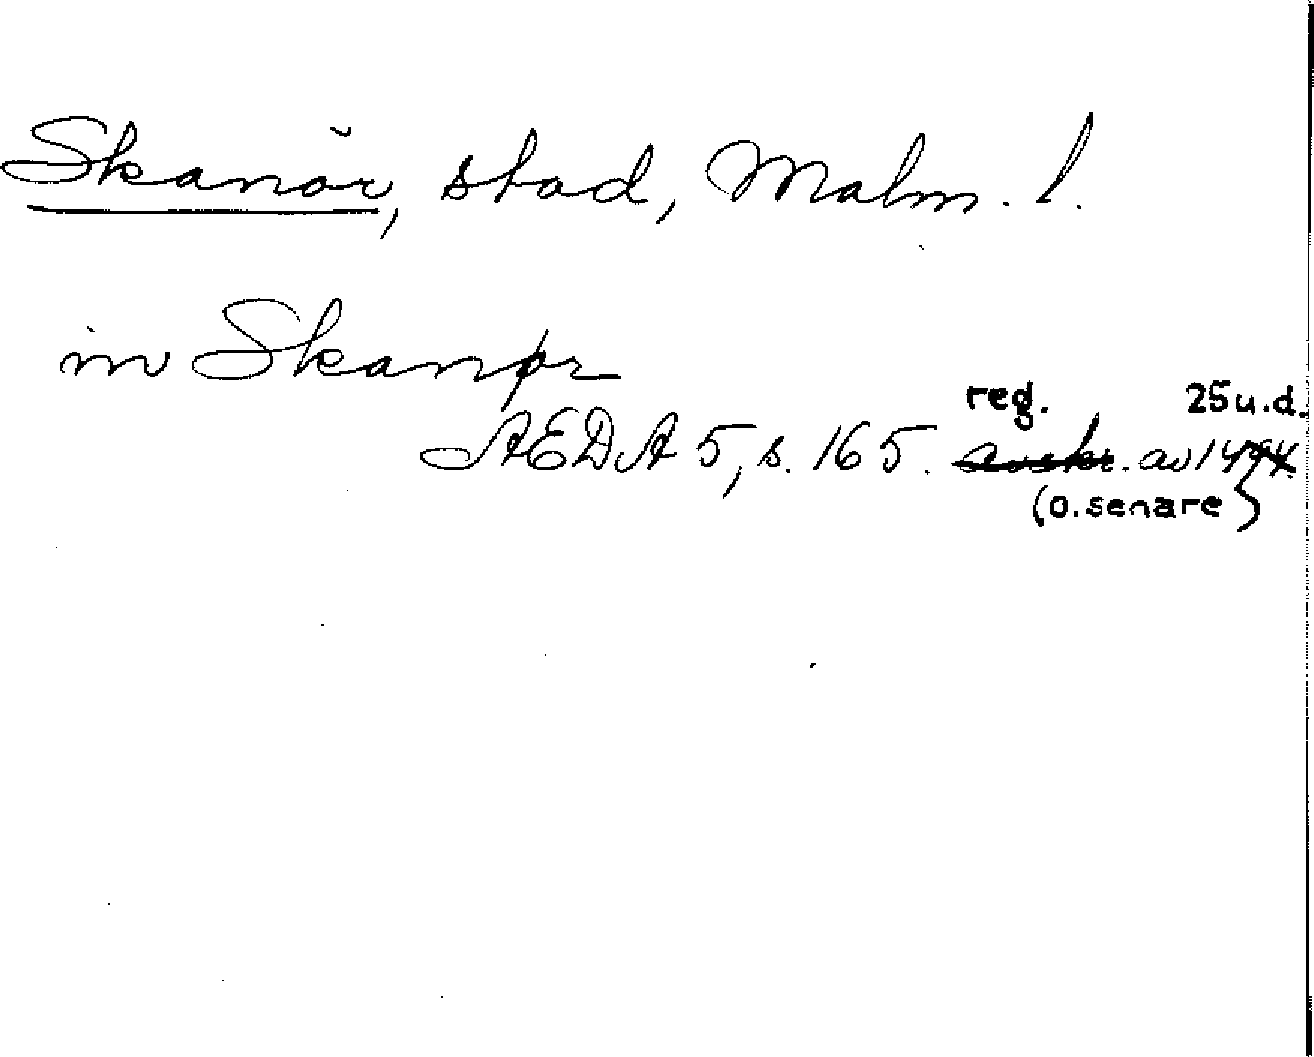 Skanör, stad, Malm. l.
in Skanør
reg. 25 u.d.
AEDA 5, s. 165. avskr. av 1494
(o. senare)